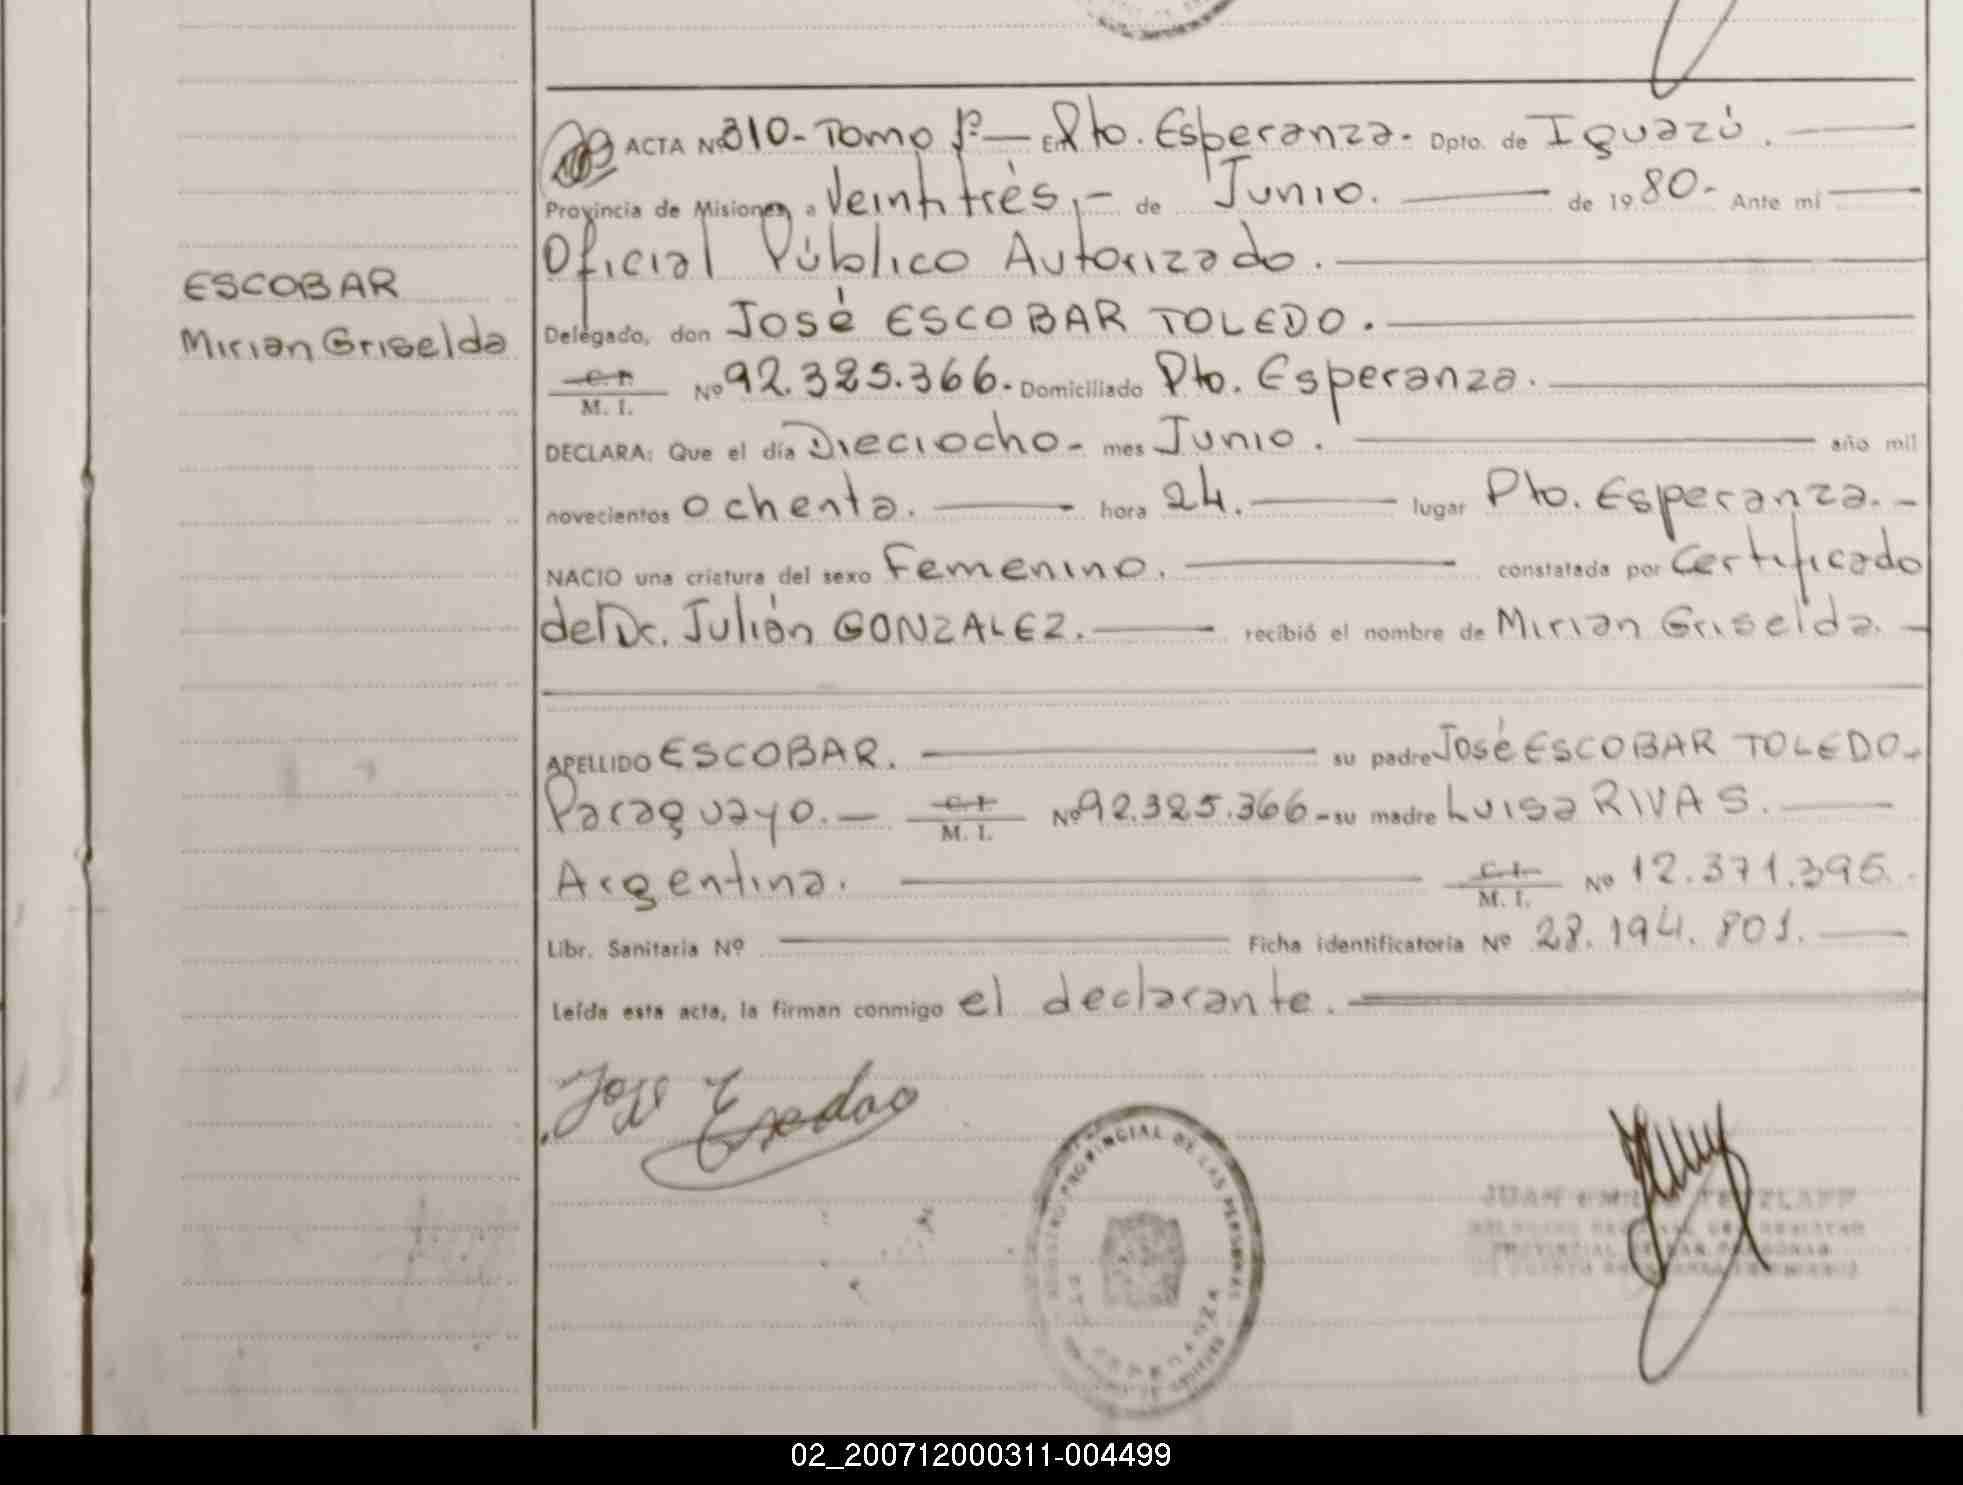 ACTA Nº 310- Tomo 1º — En Pto. Esperanza.- Dpto. de Iguazú.
Provincia de Misiones, a Veintitrés,- de Junio. de 1980- Ante mí
Oficial Público Autorizado.
ESCOBAR
Mirian Griselda
Delegado, don José ESCOBAR TOLEDO.
C. I.
M. I. Nº 92.325.366.- Domiciliado Pto. Esperanza.
DECLARA: Que el día Dieciocho- mes Junio. año mil
novecientos ochenta. hora 24. lugar Pto. Esperanza.-
NACIO una criatura del sexo Femenino. constatada por Certificado
del Dr. Julián GONZALEZ. recibió el nombre de Mirian Griselda. -
APELLIDO ESCOBAR. su padre José ESCOBAR TOLEDO.-
Paraguayo.— C. I.
M. I. Nº 92.325.366-su madre Luisa RIVAS.
Argentina. C. I.
M. I. Nº 12.371.395.-
Libr. Sanitaria Nº Ficha identificatoria Nº 28.194.801.
Leída esta acta, la firman conmigo el declarante.
José
REGISTRO PROVINCIAL DE LAS PERSONAS
ESPERANZA
JUAN EMILIO TETZLAFF
PROVINCIAL DE LAS PERSONAS
02_200712000311-004499